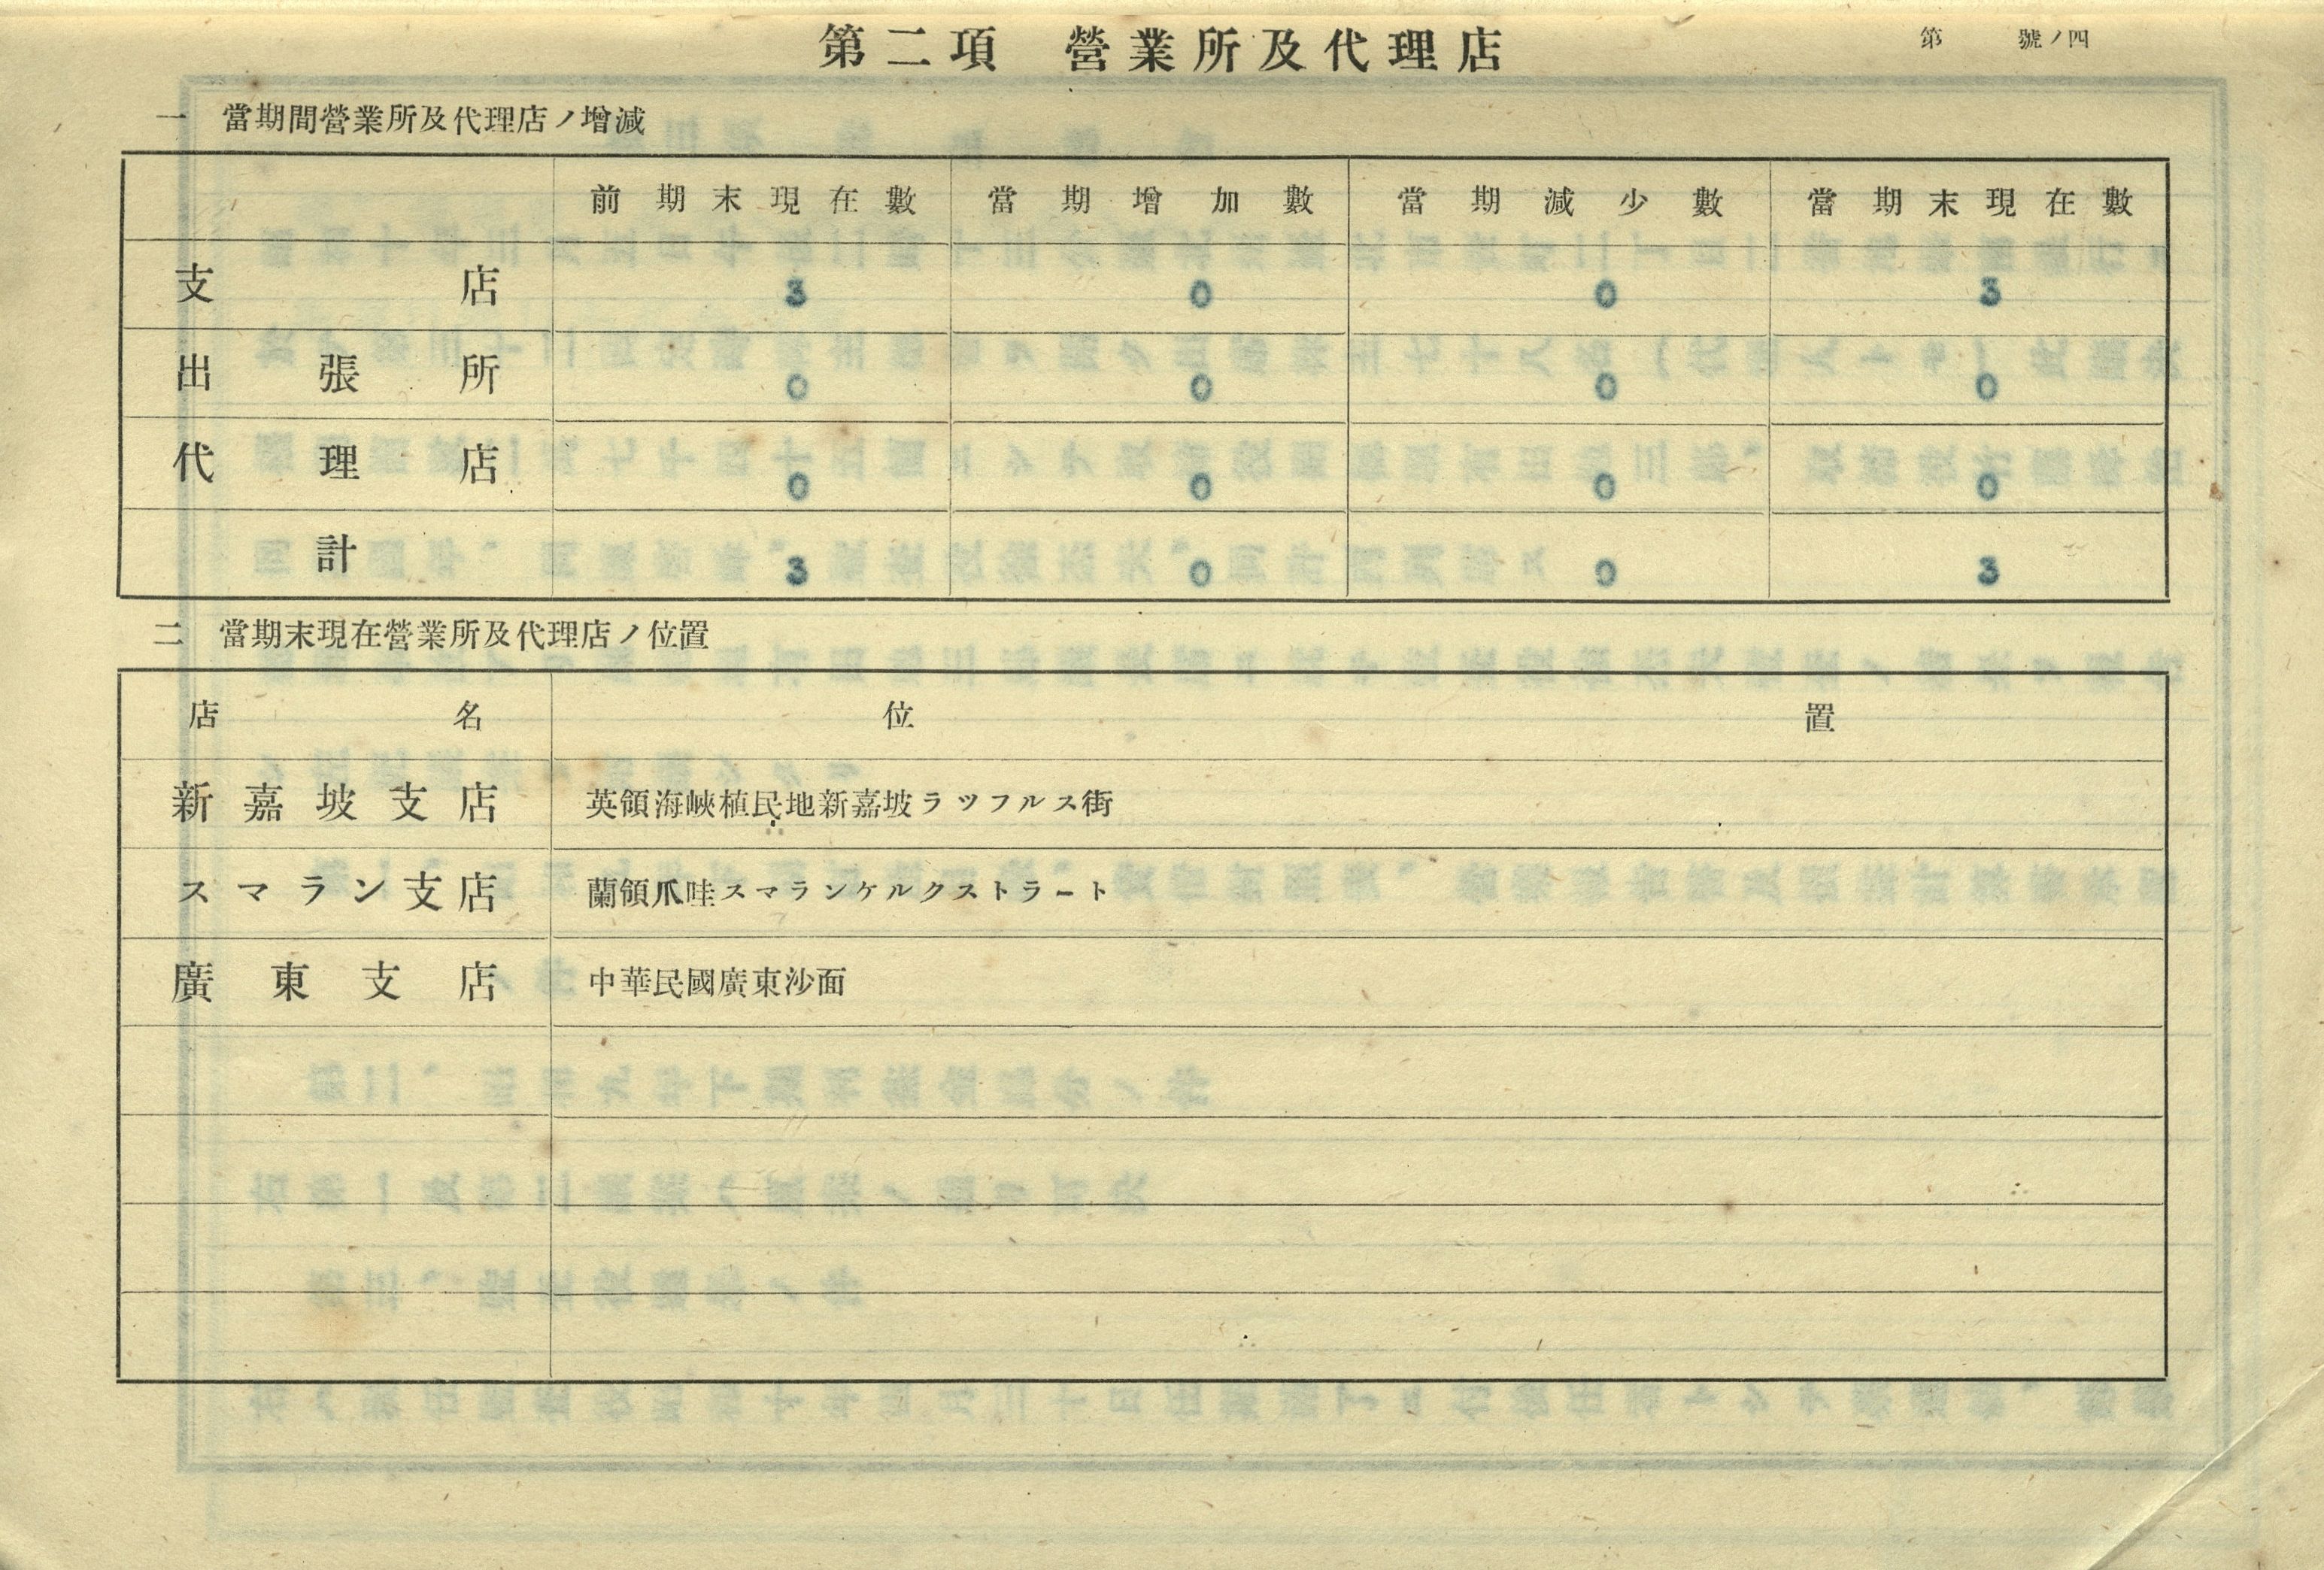 第　號ノ四
第二項　營業所及代理店
一　當期間營業所及代理店ノ增減
前期末現在數　當期增加數　當期減少數　當期末現在數
支店　3　0　0　3
出張所　0　0　0　0
代理店　0　0　0　0
計　3　0　0　3
二　當期末現在營業所及代理店ノ位置
店名　位置
新嘉坡支店　英領海峽植民地新嘉坡ラツフルス街
スマラン支店　蘭領爪哇スマランケルクストラート
廣東支店　中華民國廣東沙面